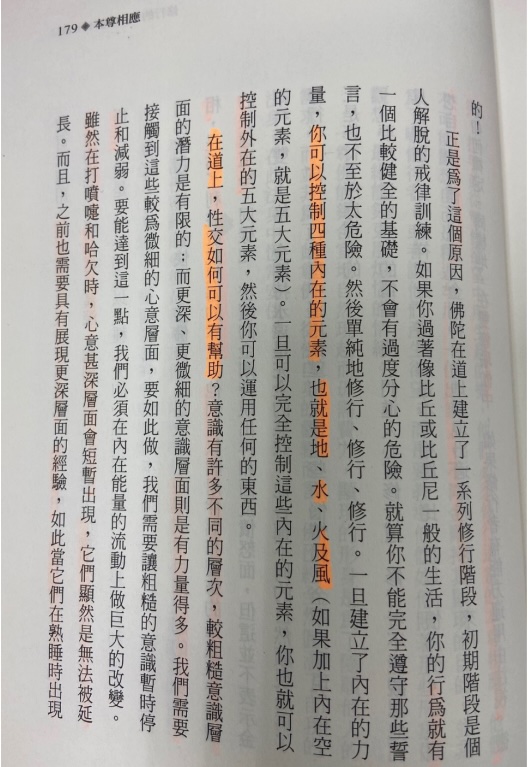 179◆本尊相應
的！
正是為了這個原因，佛陀在道上建立了一系列修行階段，初期階段是個
人解脫的戒律訓練。如果你過著像比丘或比丘尼一般的生活，你的行為就有
一個比較健全的基礎，不會有過度分心的危險。就算你不能完全遵守那些誓
言，也不至於太危險。然後單純地修行、修行、修行。一旦建立了內在的力
量，你可以控制四種內在的元素，也就是地、水、火及風（如果加上內在空
的元素，就是五大元素）。一旦可以完全控制這些內在的元素，你也就可以
控制外在的五大元素，然後你可以運用任何的東西。
在道上，性交如何可以有幫助？意識有許多不同的層次，較粗糙意識層
面的潛力是有限的；而更深、更微細的意識層面則是有力量得多。我們需要
接觸到這些較為微細的心意層面，要如此做，我們需要讓粗糙的意識暫時停
止和減弱。要能達到這一點，我們必須在內在能量的流動上做巨大的改變。
雖然在打噴嚏和哈欠時，心意甚深層面會短暫出現，它們顯然是無法被延
長。而且，之前也需要具有展現更深層面的經驗，如此當它們在熟睡時出現